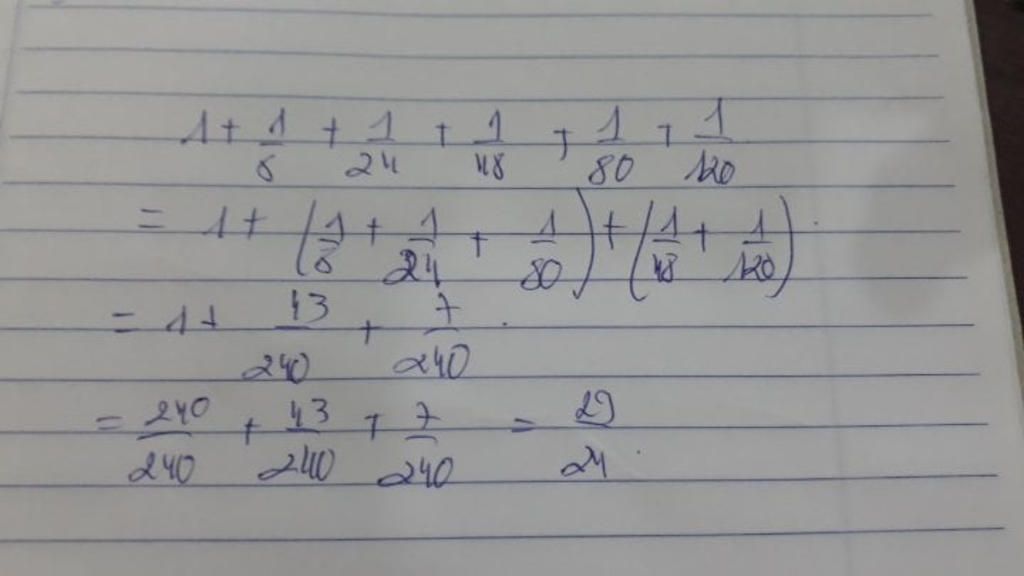 1 + 1/8 + 1/24 + 1/48 + 1/80 + 1/120
= 1 + (1/8 + 1/24 + 1/80) + (1/48 + 1/120)
= 1 + 43/240 + 7/240
= 240/240 + 43/240 + 7/240 = 29/24